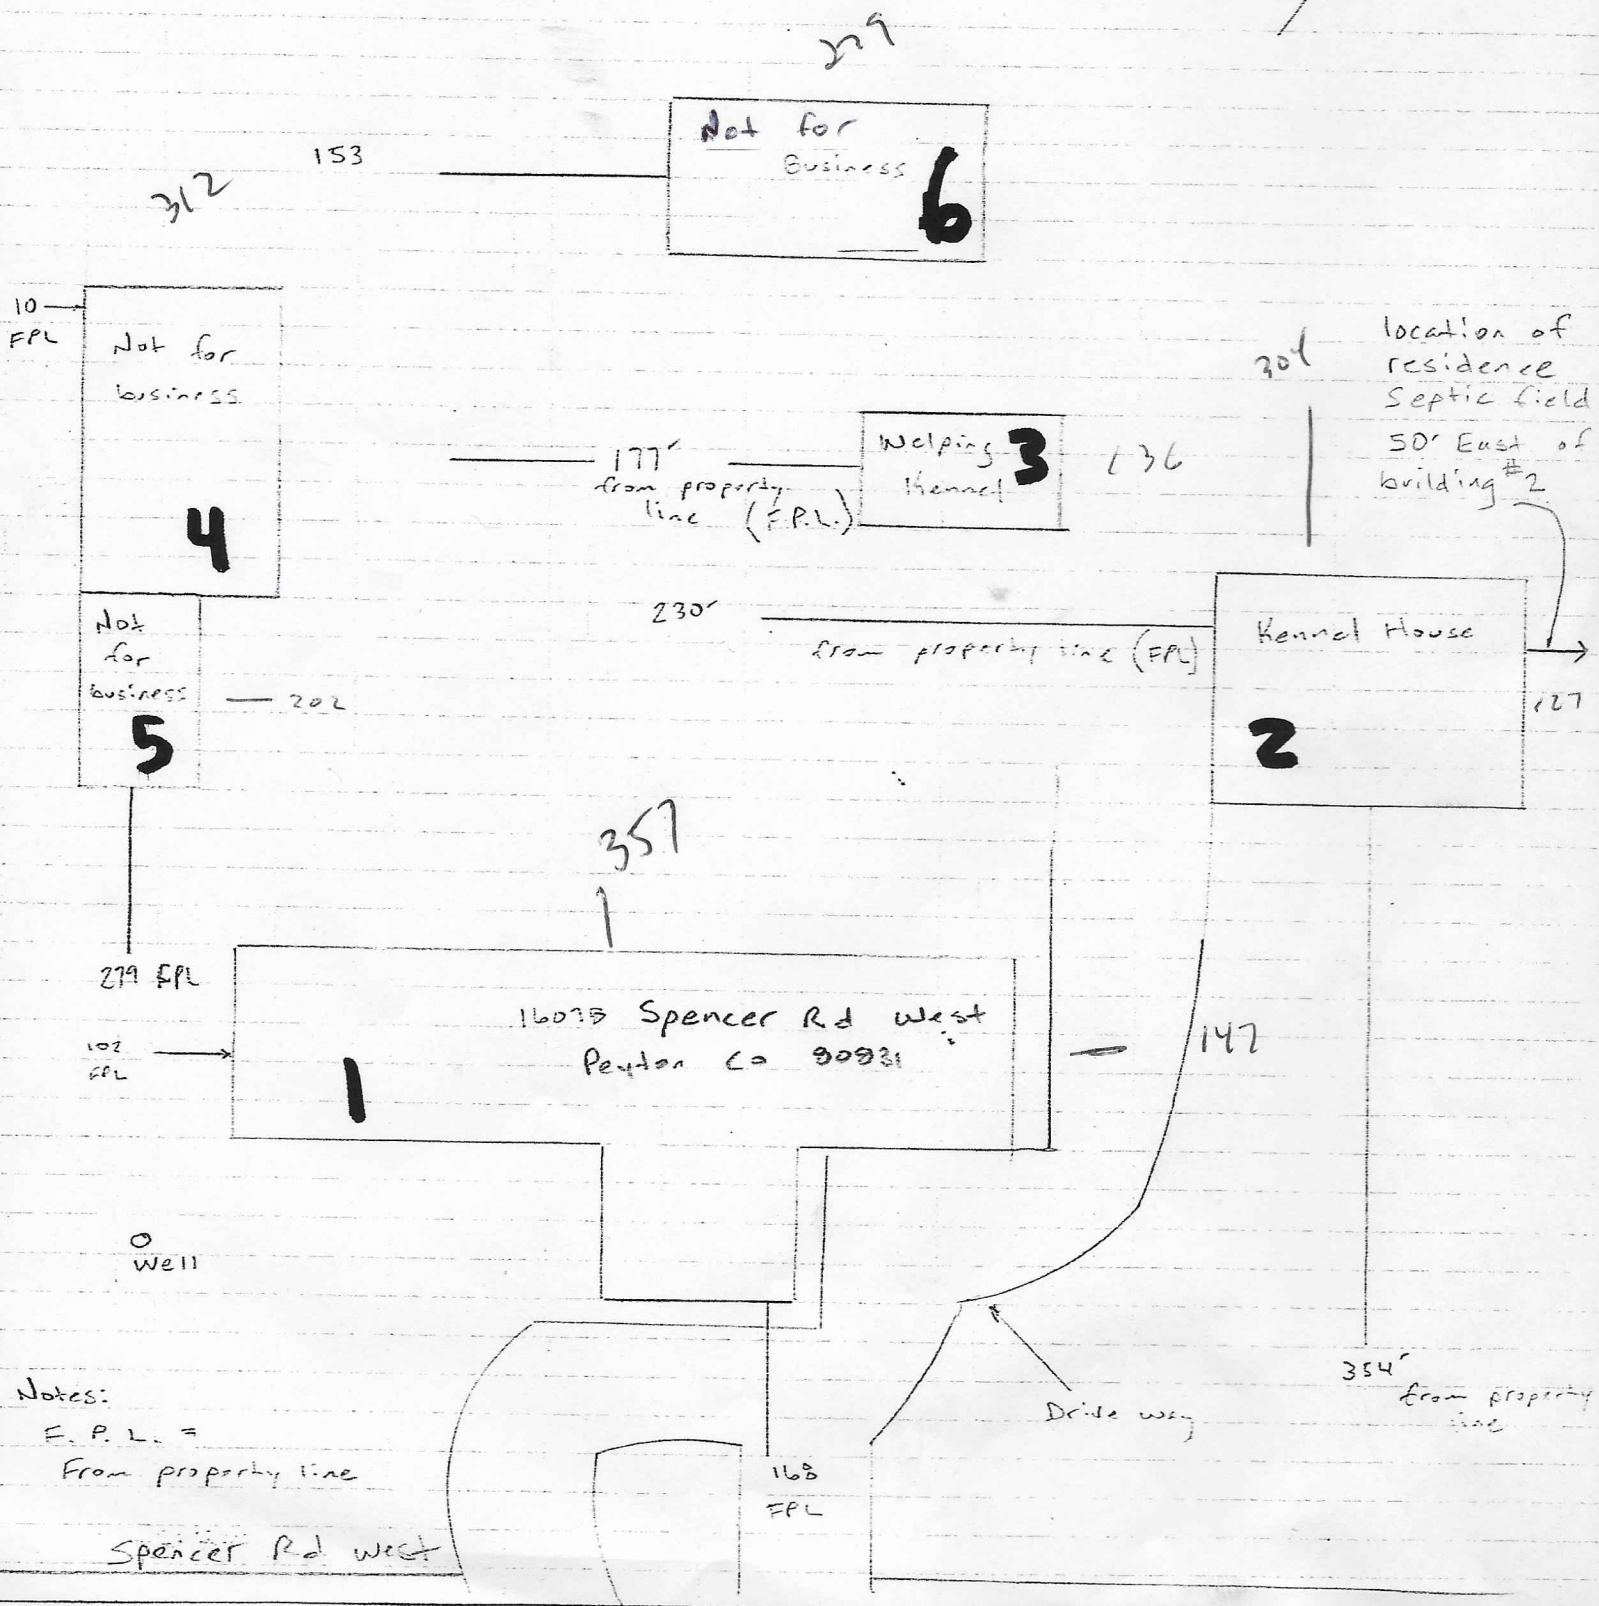 153
312
Not for
Business
6
10
FPL
Not for
business
4
location of
residence
Septic field
50' East of
building #2
304
177'
from property
line (F.P.L.)
Welping
Kennel
3
136
230'
from property line (FPL)
Kennel House
2
127
Not
for
business
5
202
357
279 FPL
102
FPL
1
Spencer Rd West
Peyton Co 80831
147
Well
Drive way
354'
from property
line
Notes:
F. P. L. =
From property line
168
FPL
Spencer Rd West